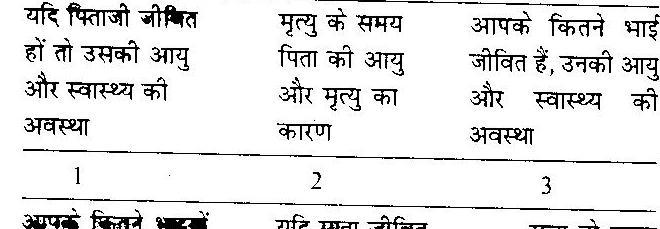 यदि पिताजी जीवित
हों तो उसकी आयु
और स्वास्थ्य की
अवस्था
मृत्यु के समय
पिता की आयु
और मृत्यु का
कारण
आपके कितने भाई
जीवित हैं, उनकी आयु
और स्वास्थ्य की
अवस्था
1 2 3
आपके कितने
यदि माता जीवित